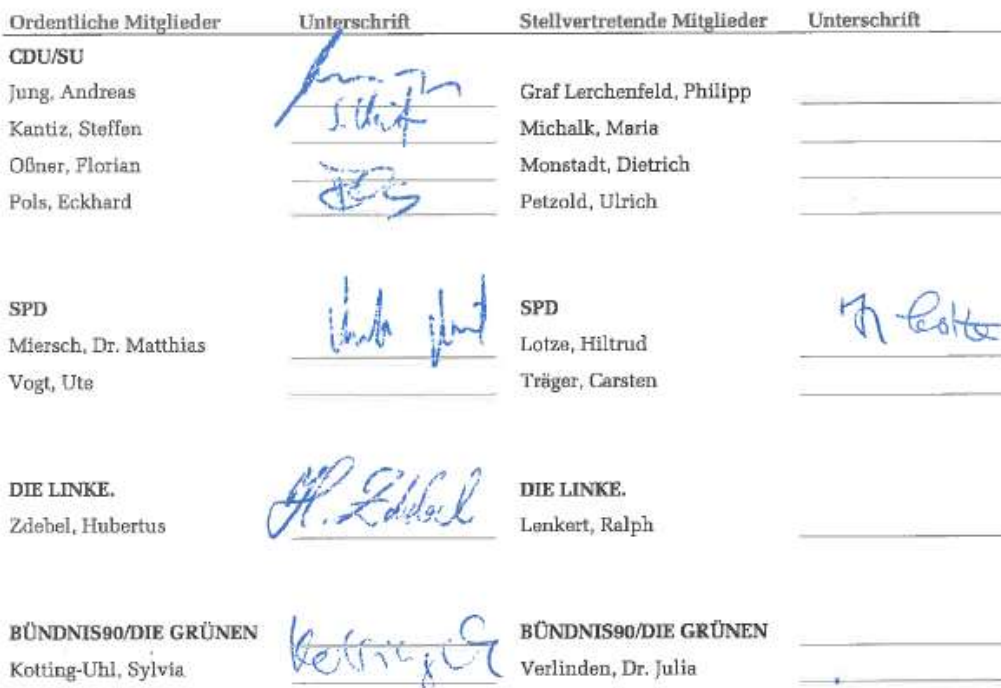 Ordentliche Mitglieder Unterschrift Stellvertretende Mitglieder Unterschrift
CDU/SU
Jung, Andreas Graf Lerchenfeld, Philipp
Kantiz, Steffen Michalk, Maria
Oßner, Florian Monstadt, Dietrich
Pols, Eckhard Petzold, Ulrich
SPD SPD
Miersch, Dr. Matthias Lotze, Hiltrud
Vogt, Ute Träger, Carsten
DIE LINKE. H. Zdebel DIE LINKE.
Zdebel, Hubertus Lenkert, Ralph
BÜNDNIS90/DIE GRÜNEN BÜNDNIS90/DIE GRÜNEN
Kotting-Uhl, Sylvia Verlinden, Dr. Julia